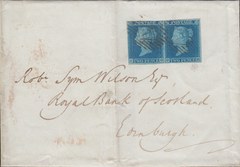 Robt. Sym Wilson Esqr.
Royal Bank of Scotland
Edinburgh.